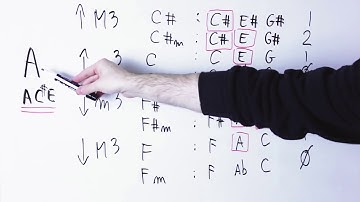 ↑ M3 C# : C# E# G# 1
C#m : C# E G# 2
A ↑ C : E G 1
AC#E ↓ m3 F#
F#m : F#
↓ M3 F : F A C Ø
Fm : F Ab C